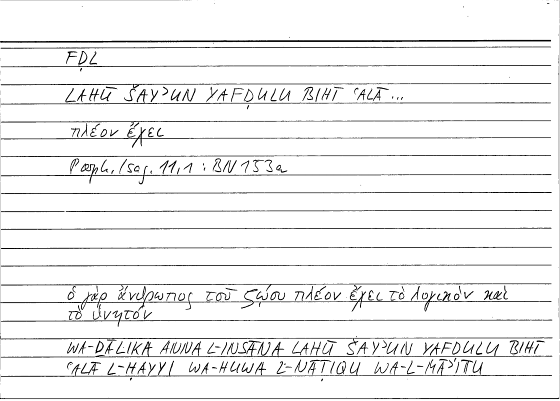 FḌL
LAHŪ ŠAYʾUN YAFḌULU BIHĪ ʿALĀ ...
πλέον ἔχει
Porph., Isag. 11,1 : BN 153a
ὁ γὰρ ἄνθρωπος τοῦ ζῴου πλέον ἔχει τὸ λογικὸν καὶ
τὸ θνητόν
WA-ḎĀLIKA ANNA L-INSĀNA LAHŪ ŠAYʾUN YAFḌULU BIHĪ
ʿALĀ L-ḤAYYI WA-HUWA L-NĀṬIQU WA-L-MĀʾITU